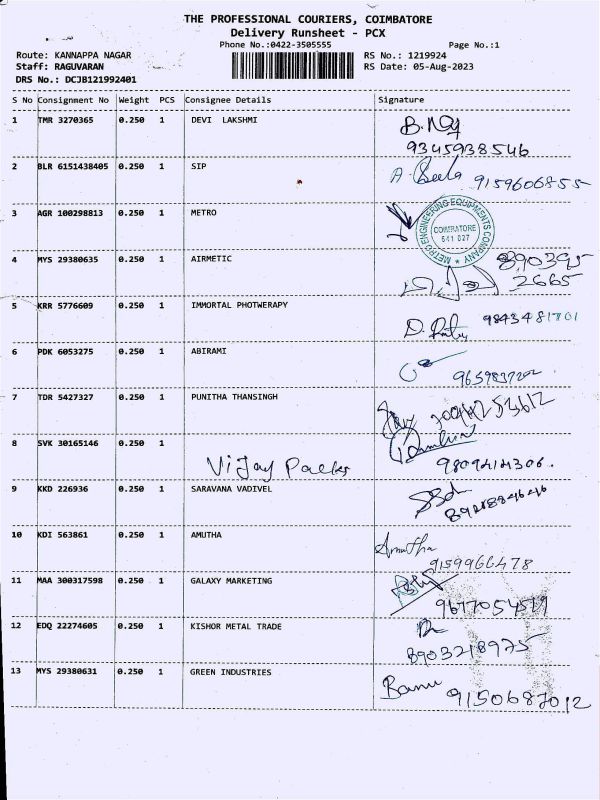 THE PROFESSIONAL COURIERS, COIMBATORE
Delivery Runsheet - PCX
Phone No.:0422-3505555
Page No.:1
Route: KANNAPPA NAGAR
RS No.: 1219924
Staff: RAGUVARAN
RS Date: 05-Aug-2023
DRS No.: DCJB121992401
S No Consignment No Weight PCS Consignee Details Signature
1 TMR 3270365 0.250 1 DEVI LAKSHMI
9345938546
2 BLR 6151438405 0.250 1 SIP
9159606855
3 AGR 100298813 0.250 1 METRO
METRO ENGINEERING EQUIPMENTS COMPANY
COIMBATORE
641 027
4 MYS 29380635 0.250 1 AIRMETIC
890395
2665
5 KRR 5776609 0.250 1 IMMORTAL PHOTWERAPY
6 PDK 6053275 0.250 1 ABIRAMI
7 TDR 5427327 0.250 1 PUNITHA THANSINGH
8 SVK 30165146 0.250 1
Vijay Packs
9 KKD 226936 0.250 1 SARAVANA VADIVEL
10 KDI 563861 0.250 1 AMUTHA
Amutha
9159966478
11 MAA 300317598 0.250 1 GALAXY MARKETING
9677054519
12 EDQ 22274605 0.250 1 KISHOR METAL TRADE
8903218975
13 MYS 29380631 0.250 1 GREEN INDUSTRIES
Banu
9150687012